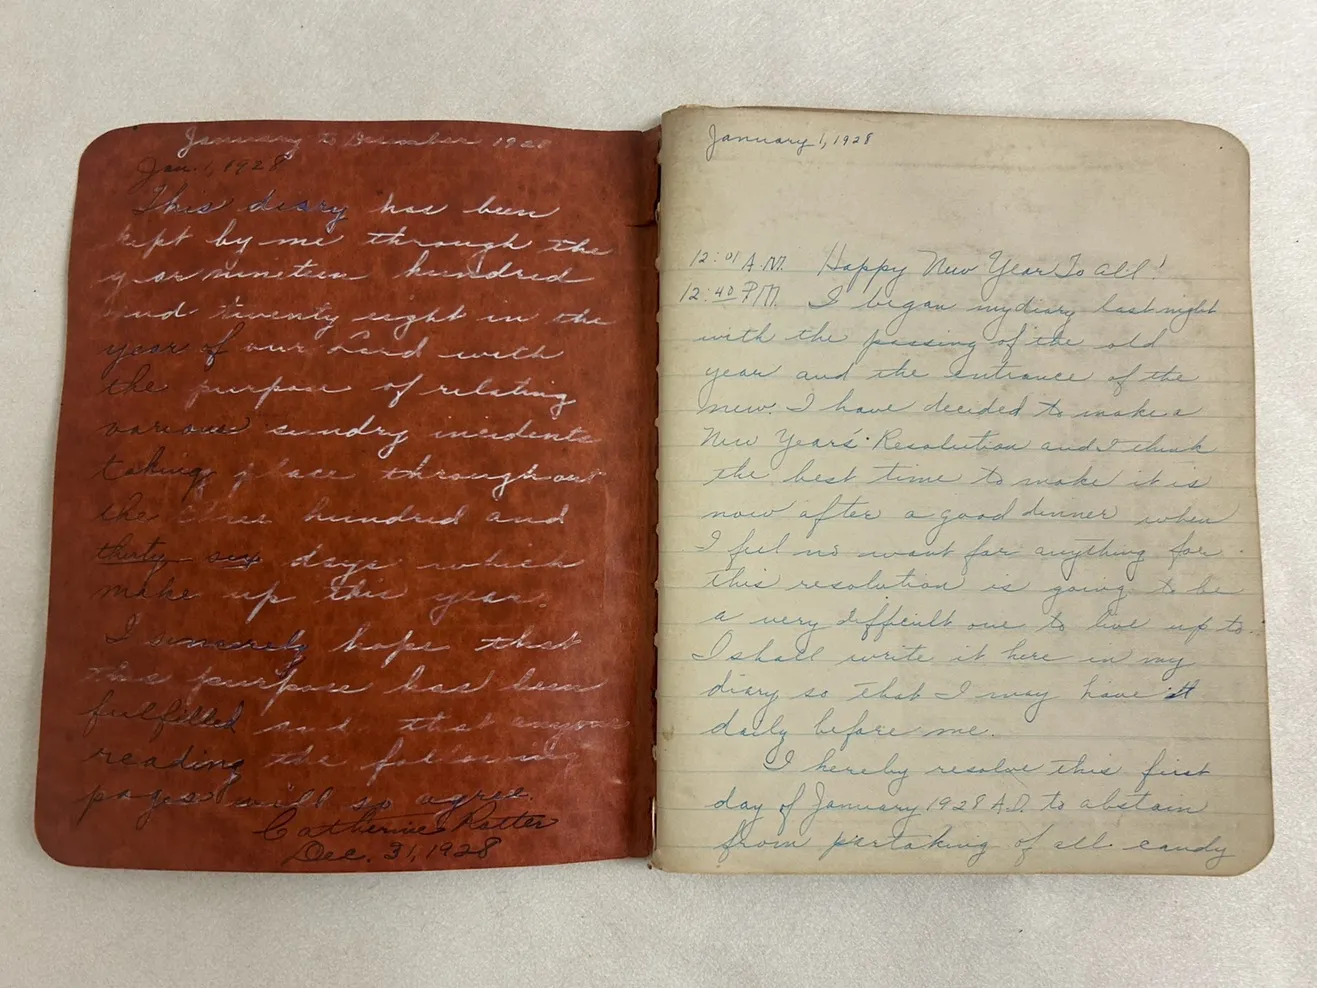 January to December 1928
Jan. 1, 1928
This diary has been
kept by me through the
year nineteen hundred
and twenty eight in the
year of our Lord with
the purpose of relating
various sundry incidents
taking place throughout
the three hundred and
thirty six days which
make up this year.
I sincerely hope that
this purpose has been
fulfilled and that anyone
reading the following
pages will so agree.
Catherine Rotter
Dec. 31, 1928
January 1, 1928
12:01 A.M. Happy New Year To All!
12:40 P.M. I began my diary last night
with the passing of the old
year and the entrance of the
new. I have decided to make a
New Year's Resolution and I think
the best time to make it is
now after a good dinner when
I feel no want for anything for
this resolution is going to be
a very difficult one to live up to.
I shall write it here in my
diary so that I may have it
daily before me.
I hereby resolve this first
day of January 1928 A.D. to abstain
from partaking of all candy